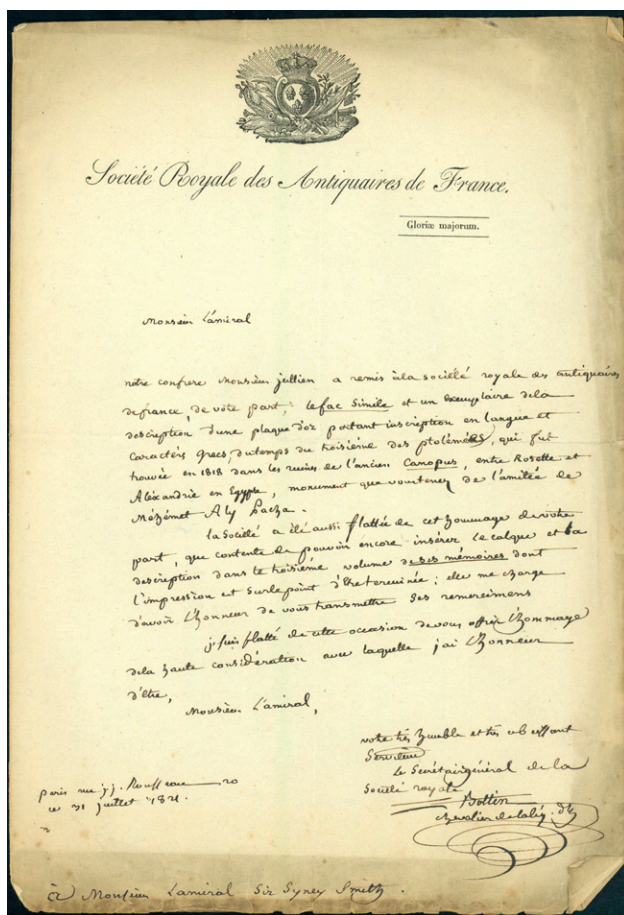 Société Royale des Antiquaires de France.
Gloriæ majorum.
Monsieur L'amiral
notre confrere Monsieur jullien a remis à la société royale des antiquaires
de france, de votre part, le fac simile et un exemplaire de la
description d'une plaque d'or portant inscription en langue et
caractérs grecs, du temps du troisième des ptolémées, qui fut
trouvée en 1818 dans les ruines de l'ancien Canopus, entre Rosette et
Aléxandrie en Egypte, monument que vous tenez de l'amitée de
Méhémet Aly Pacha.
la Société a été aussi flattée de cet hommage de votre
part, que contente de pouvoir encore insérer le calque et la
description dans le troisième volume de ses mémoires dont
l'impression est sur le point d'être terminée; elle me charge
d'avoir l'honneur de vous transmettre ses remercimens
je suis flatté de cette occasion de vous offrir l'hommage
de la haute considération avec laquelle j'ai l'honneur
d'être,
Monsieur L'amiral,
votre très humble et très obeissant
Serviteur
Le Secrétaire général de la
Société royale
Bottin
chevalier de la lég. d'h
paris rue j.j. Rousseau 20
ce 31 juillet 1821.
à Monsieur Lamiral Sir Syney Smith.